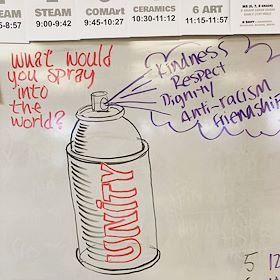 STEAM
COMArt
CERAMICS
6 ART
5-8:57
9:00-9:42
9:45-10:27
10:30-11:12
11:15-11:57
what would
you spray
into
the
world?
Kindness
Respect
Dignity
Anti-racism
Friendship
UNiTY
5